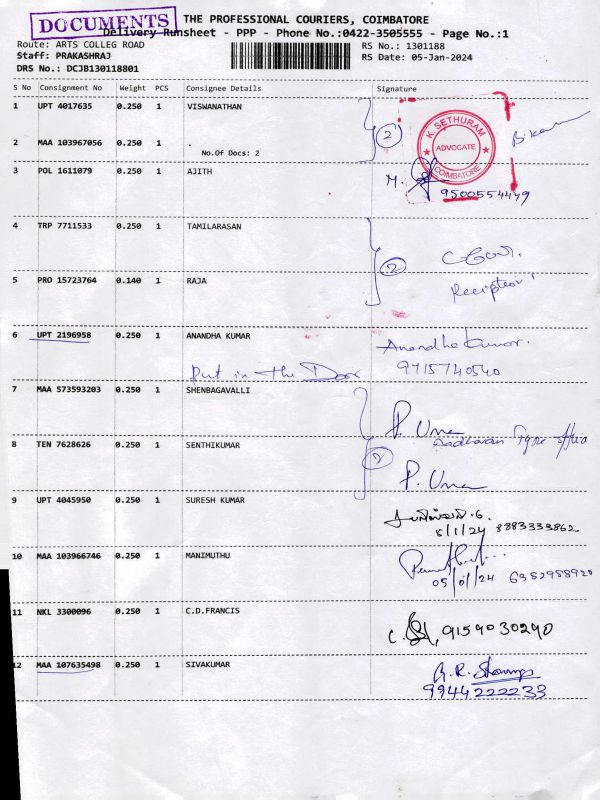 DOCUMENTS
THE PROFESSIONAL COURIERS, COIMBATORE
Delivery Runsheet - PPP - Phone No.:0422-3505555 - Page No.:1
Route: ARTS COLLEG ROAD
RS No.: 1301188
Staff: PRAKASHRAJ
RS Date: 05-Jan-2024
DRS No.: DCJB130118801
S No Consignment No Weight PCS Consignee Details Signature
1 UPT 4017635 0.250 1 VISWANATHAN
2
K. SETHURAM
ADVOCATE
COIMBATORE
2 MAA 103967056 0.250 1 .
No.Of Docs: 2
3 POL 1611079 0.250 1 AJITH
M.
9500554449
4 TRP 7711533 0.250 1 TAMILARASAN
2
5 PRO 15723764 0.140 1 RAJA
6 UPT 2196958 0.250 1 ANANDHA KUMAR
Anandha Kumar.
9715740540
Put in the Door
7 MAA 573593203 0.250 1 SHENBAGAVALLI
P. Uma
8 TEN 7628626 0.250 1 SENTHIKUMAR
2
P. Uma
9 UPT 4045950 0.250 1 SURESH KUMAR
5/1/24 8883333862
10 MAA 103966746 0.250 1 MANIMUTHU
05/01/24 6382988920
11 NKL 3300096 0.250 1 C.D.FRANCIS
C. 9159030290
12 MAA 107635498 0.250 1 SIVAKUMAR
R.R. Stamps
9944222233